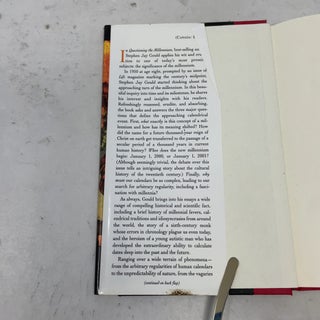 (Continu
In Questioning the Millennium, best-selling au
Stephen Jay Gould applies his wit and eru
tion to one of today's most pressin
subjects, the significance of the millennium.
In 1950 at age eight, prompted by an issue of
Life magazine marking the century's midpoint,
Stephen Jay Gould started thinking about the
approaching turn of the millennium. In this beau-
tiful inquiry into time and its milestones, he shares
his interest and insights with his readers.
Refreshingly reasoned, erudite, and absorbing,
the book asks and answers the three major ques-
tions that define the approaching calendrical
event. First, what exactly is this concept of a mil-
lennium and how has its meaning shifted? How
did the name for a future thousand-year reign of
Christ on earth get transferred to the passage of a
secular period of a thousand years in current
human history? When does the new millennium
begin: January 1, 2000, or January 1, 2001?
(Although seemingly trivial, the debate over this
issue tells an intriguing story about the cultural
history of the twentieth century.) Finally, why
must our calendars be so complex, leading to our
search for arbitrary regularity, including a fasci-
nation with millennia?
As always, Gould brings into his essays a wide
range of compelling historical and scientific fact,
including a brief history of millennial fevers, cal-
endrical traditions, and idiosyncrasies from around
the world, the story of a sixth-century monk
whose errors in chronology plague us even today,
and the heroism of a young autistic man who has
developed the extraordinary ability to calculate
dates deep into the past and the future.
Ranging over a wide terrain of phenomena—
from the arbitrary regularities of human calendars
to the unpredictability of nature, from the vagaries
(continued on back flap)